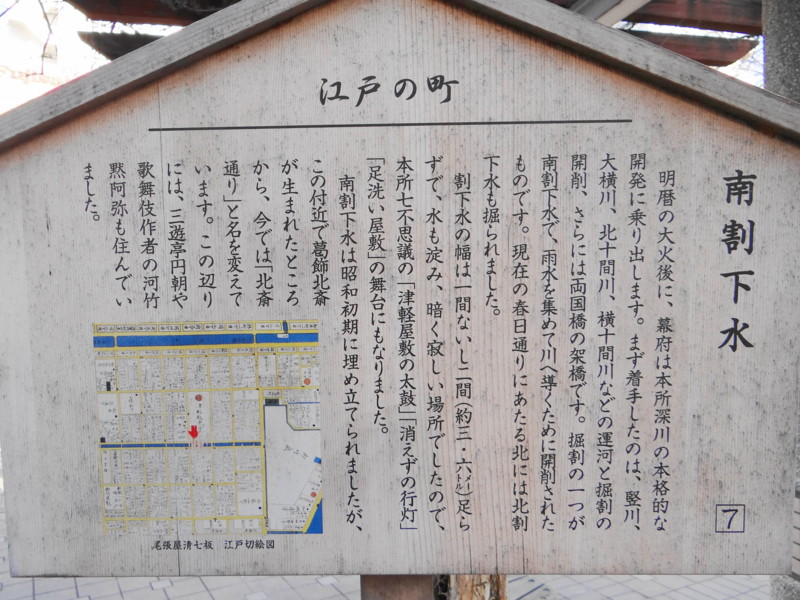 江戸の町
南割下水
明暦の大火後に、幕府は本所深川の本格的な
開発に乗り出します。まず着手したのは、竪川、
大横川、北十間川、横十間川などの運河と掘割の
開削、さらには両国橋の架橋です。掘割の一つが
南割下水で、雨水を集めて川へ導くために開削された
ものです。現在の春日通りにあたる北には北割
下水も掘られました。
割下水の幅は一間ないし二間(約三・六メートル)足ら
ずで、水も淀み、暗く寂しい場所でしたので、
本所七不思議の「津軽屋敷の太鼓」「消えずの行灯」
「足洗い屋敷」の舞台にもなりました。
南割下水は昭和初期に埋め立てられましたが、
この付近で葛飾北斎
が生まれたところ
から、今では「北斎
通り」と名を変えて
います。この辺り
には、三遊亭円朝や
歌舞伎作者の河竹
黙阿弥も住んでい
ました。
尾張屋清七板 江戸切絵図
7